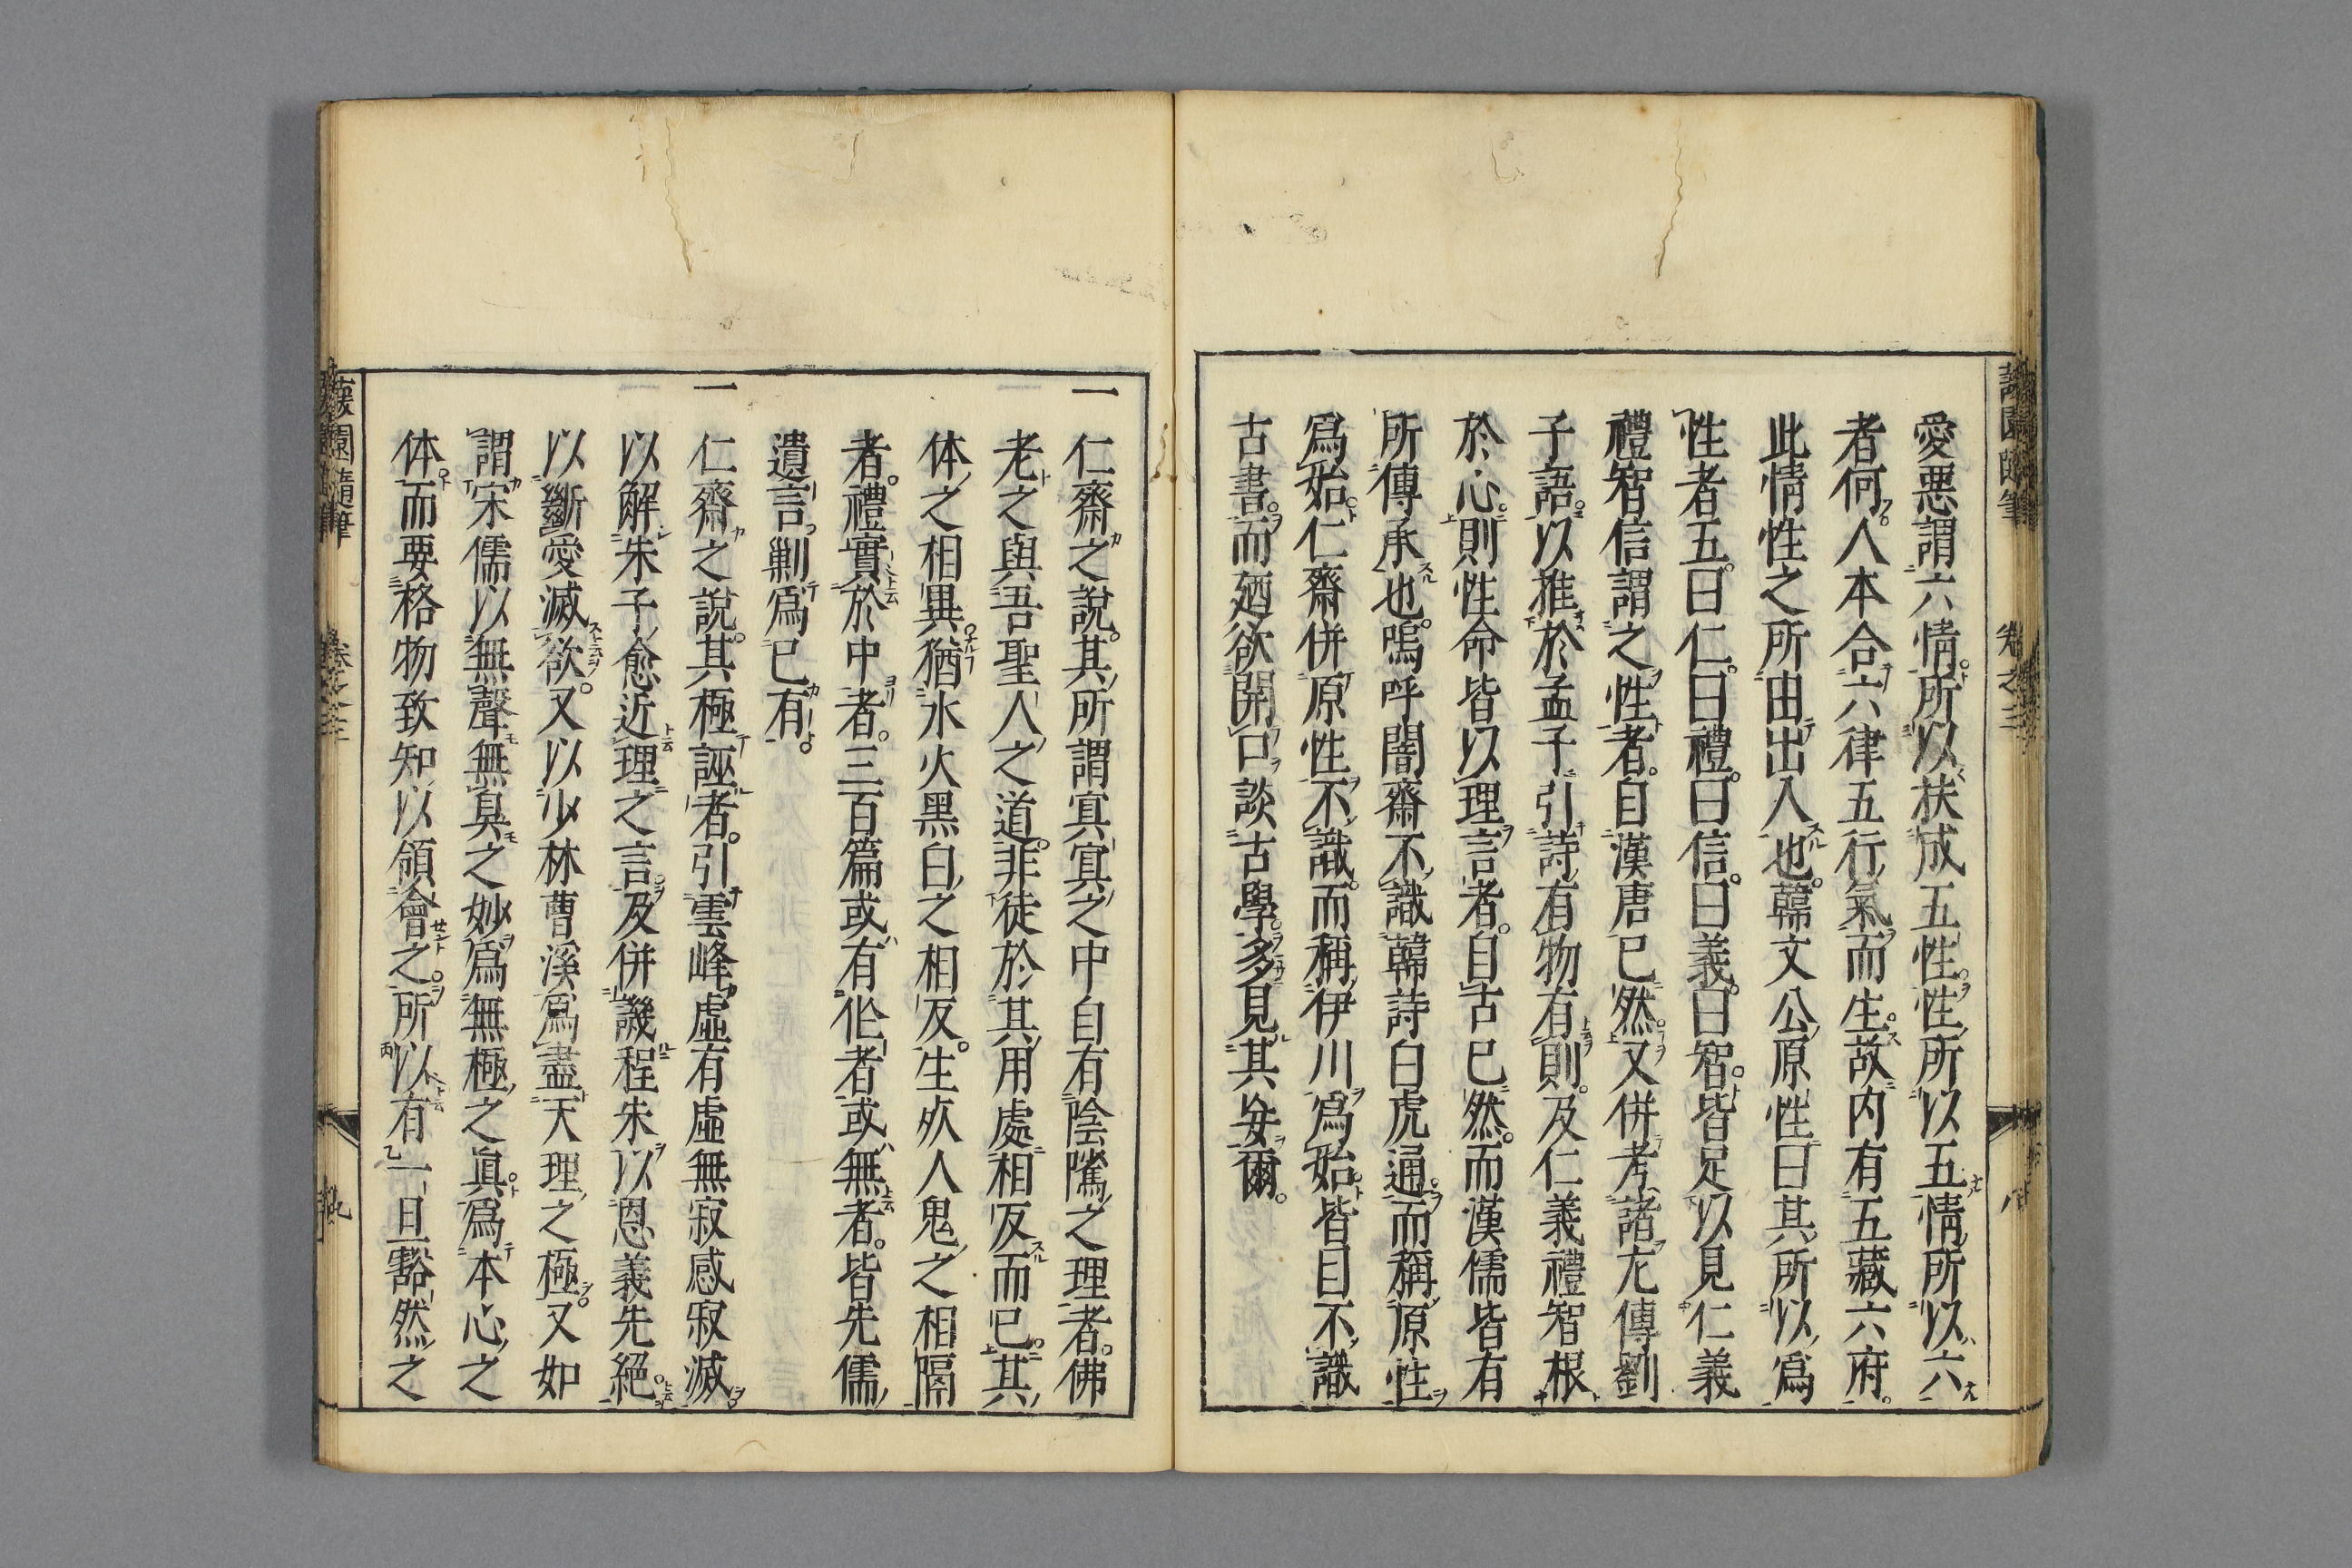 愛惡謂六情。所以扶成五性。性所以五情所以六
者何。人本合六律五行氣而生。故内有五藏六府。
此情性之所由出入也。韓文公原性曰其所以爲
性者五。曰仁。曰禮。曰信。曰義。曰智。皆足以見仁義
禮智信謂之性者。自漢唐已然。又併考諸左傳劉
子語。以推於孟子引詩有物有則。及仁義禮智根
於心。則性命皆以理言者。自古已然。而漢儒皆有
所傳承也。嗚呼闇齋不識韓詩白虎通。而稱原性
爲始。仁齋併原性不識。而稱伊川爲始。皆目不識
古書。而廼欲開口談古學。多見其妄爾。
一 仁齋之說。其所謂寘寘之中自有陰隲之理者。佛
老之與吾聖人之道。非徒於其用處相反而已。其
体之相異。猶水火黑白之相反。生死人鬼之相隔
者。禮實於中者。三百篇或有作者或無者。皆先儒
遺言。剿爲已有。
一 仁齋之說。其極誣者。引雲峰虛有虛無寂感寂滅
以解朱子愈近理之言。及併譏程朱以恩義先絕。
以斷愛滅欲。又以少林曹溪爲盡天理之極。又如
謂宋儒以無聲無臭之妙爲無極之眞。爲本心之
体。而要格物致知以領會之。所以有一旦豁然之
卷之三